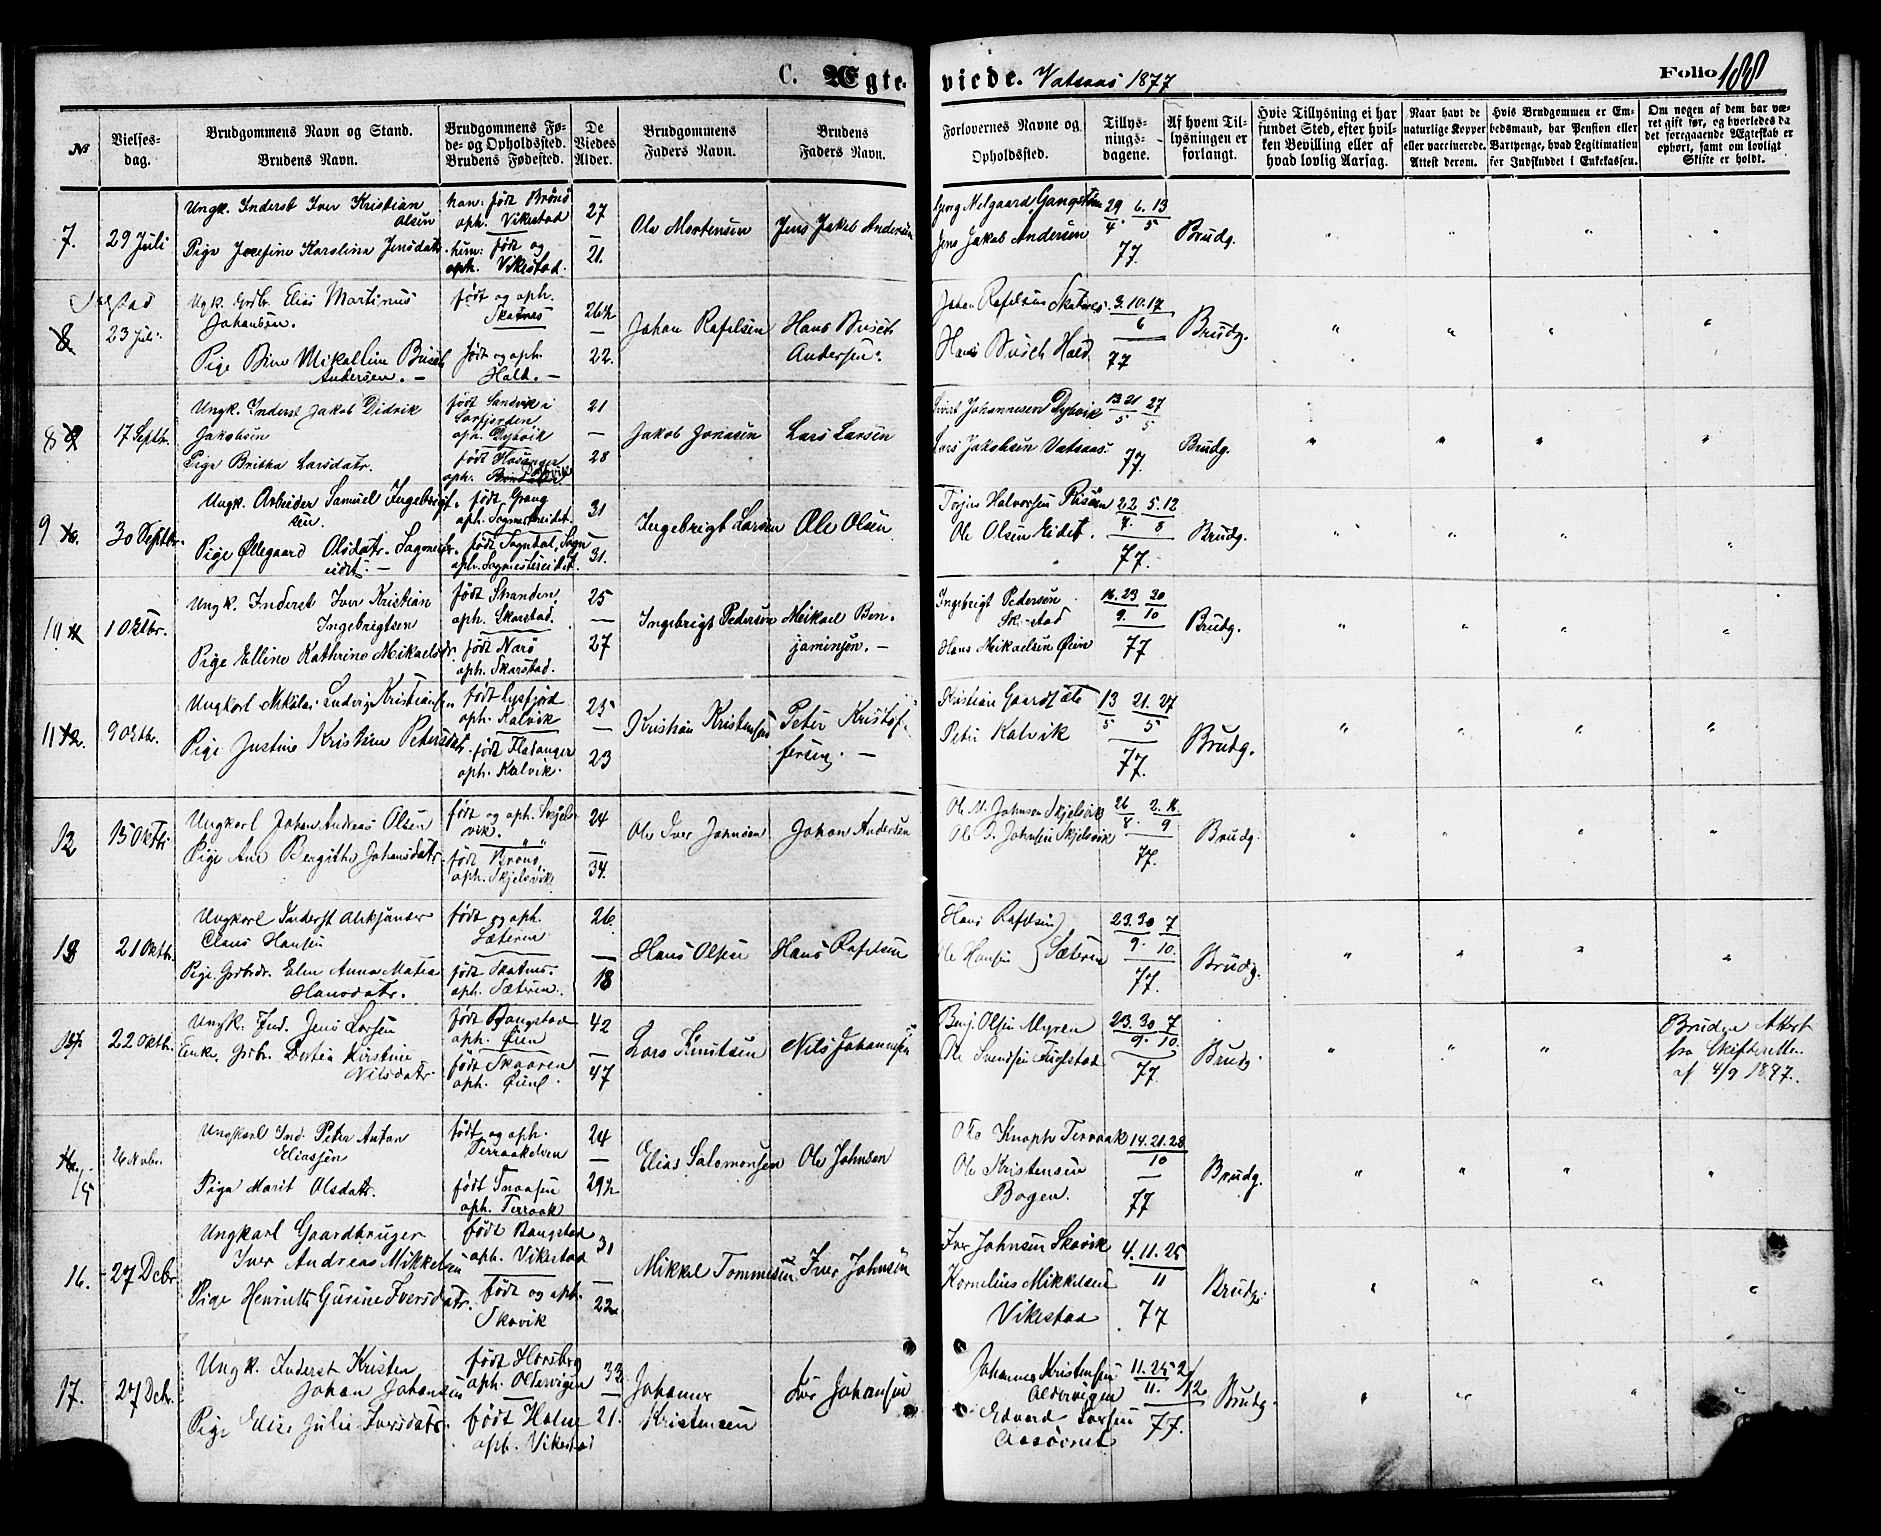 C. Ægte-
viede. Vatsaas 1877
Folio 188
№
Vielses-
dag.
Brudgommens Navn og Stand.
Brudens Navn.
Brudgommens Fø-
de- og Opholdssted.
Brudens Fødested.
De
Viedes
Alder.
Brudgommens
Faders Navn.
Brudens
Faders Navn.
Forlovernes Navne og
Opholdssted.
Tillys-
nings-
dagene.
Af hvem Til-
lysningen er
forlangt.
Hvis Tillysning ei har
fundet Sted, efter hvil-
ken Bevilling eller af
hvad lovlig Aarsag.
Naar havt de
naturlige Kopper
eller vaccinerede.
Attest derom.
Hvis Brudgommen er Em-
bedsmand, har Pension eller
Vartpenge, hvad Legitimation
for Indskuddet i Enkekassen.
Om nogen af dem har væ-
ret gift før, og hvorledes da
det foregaaende Ægteskab er
ophørt, samt om lovligt
Skifte er holdt.
7. 29 Juli
Ungk. Inderst Iver Kristian
Olsen
Pige Josefine Karolina Jensdatr.
han: født Brønø
oph. Vikestad
hun: født og
oph. Vikestad.
27
21.
Ole Mortensen
Jens Jakob Andersen
Jens Jakob Andersen
29 6. 13
4. 5
77.
Brudg.
8 23 Juli
Ugk. Grdbr. Elias Martinus
Johansen.
Pige Mikalline Busch
Andersen. —
født og oph.
Skatnes
født og oph.
Hald. —
26½
22.
Johan Rafelsen
Hans Busch
Andersen.
Johan Rafelsen Skatnes.
Hans Busch Hald
3. 10. 17
6
77
Brudg.
8 17 Septbr.
Ungk. Inderst Jakob Didrik
Jakobsen
Pige Britha Larsdatr.
født Sandvik i
Sørfjorden
oph. Dybvik
oph.
21
28
Jakob Jonasen
Lars Larsen
Johannesen Dybvik
Lars Jakobsen Vatsaas.
13 21 27
5 5
77.
Brudg.
9 30 Septbr.
Ungk. Arbeider Samuel Ingebrigt-
sen.
Pige Øllegaard Olsdatr. Sagmester-
eidet. —
født Grong
oph. Sagmestereidet.
født Sogndal, Sogn
oph. Sagmestereidet.
31
31.
Ingebrigt Larsen
Ole Olsen
Halvorsen
Ole Olsen Eidet.
22 5. 12
7. 8
77.
Brudg.
10 1 Oktbr.
Ungk. Inderst Iver Kristian
Ingebrigtsen
Pige Elline Kathrine Mikaelsdr.
født Stranden
oph. Skarstad.
født Nærø
oph. Skarstad.
25
27
Ingebrigt Pedersen
Mikael Ben-
jaminsen. —
Ingebrigt Pedersen
Skarstad
Hans Mikaelsen Øien
16. 23 30
9. 10
77
Brudg.
11 9 Oktbr.
Ungkarl Nikolai Ludvig Kristiansen
Pige Justine Kristine Petersdatr.
født Lysfjord
oph. Kalvik
født Fladanger
oph. Kalvik.
25
23
Kristian Kristensen
Peter Kristof-
fersen. —
Kristian
Peter Kalvik
13 21. 27
5 5
77.
Brudg.
12 15 Oktbr
Ungkarl Johan Andreas Olsen
Pige Ane Bergitha Johansdatr.
født og oph. Skjels-
vik.
født Brønø
oph. Skjelsvik
24
34.
Ole Iver Johnsen
Johan Andersen
Ole M. Johnsen Skjelsvik
Ole I. Johnsen Skjelsvik
26 2. 16
8. 9
77.
Brudg.
13 21 Oktbr.
Ungkarl Inderst
Claus Hansen
Pige Grdbrdr. Elen Anna Matea
Hansdatr.
født og oph.
Sæteren
født Skatnes.
oph. Sæteren.
26.
18
Hans Olsen
Hans Rafelsen
Hans Rafelsen
Ole Hansen } Sæteren
23. 30 7
9. 10.
77
Brudg.
14. 22 Oktbr.
Ungk. Ind. Jens Larsen
Enke Grdbr. Bertea Kirstine
Nilsdatr.
født Bangstad
oph. Øien
født Skaaren
oph. Øien.
42
47
Lars Knutsen
Nils Johannesen
Benj. Olsen Myren
Ole Svendsen Fuglstad
23. 30 7
9. 10.
77.
Brudg.
Bruden Attest
fra Skifteretten
af 4/9 1877.
15 26 Novbr.
Ungkarl Ind. Peter Anton
Eliassen
Pige Marit Olsdatr.
født og oph.
Terraakelven
født Snaasen
oph. Terraak
24
29½
Elias Salomonsen
Ole Johnsen
Knoph Terraak
Ole Kristensen
Bogen.
14. 21. 28
10
77
Brudg.
16. 27 Decbr
Ungkarl Gaardbruger
Iver Andreas Mikkelsen
Pige Henriette Gurine Iversdatr.
født Bangstad
oph. Vikestad
født og oph.
Skovik
31
22
Mikkel Tommesen
Iver Johnsen
Iver Johnsen Skovik
Kornelius Mikkelsen
Vikestad
4. 11. 25
11
77
Brudg.
17. 27 Decbr.
Ungk. Inderst Kristen
Johan Johansen
Pige Elise Julie Iversdatr.
født Horsberg
oph. Oldervigen
født Holm
oph. Vikestad
33
21.
Johannes
Kristensen
Iver Johansen
Johannes Kristensen
Oldervigen
Edvard Larsen
11. 25 2/12
11.
77.
Brudg.